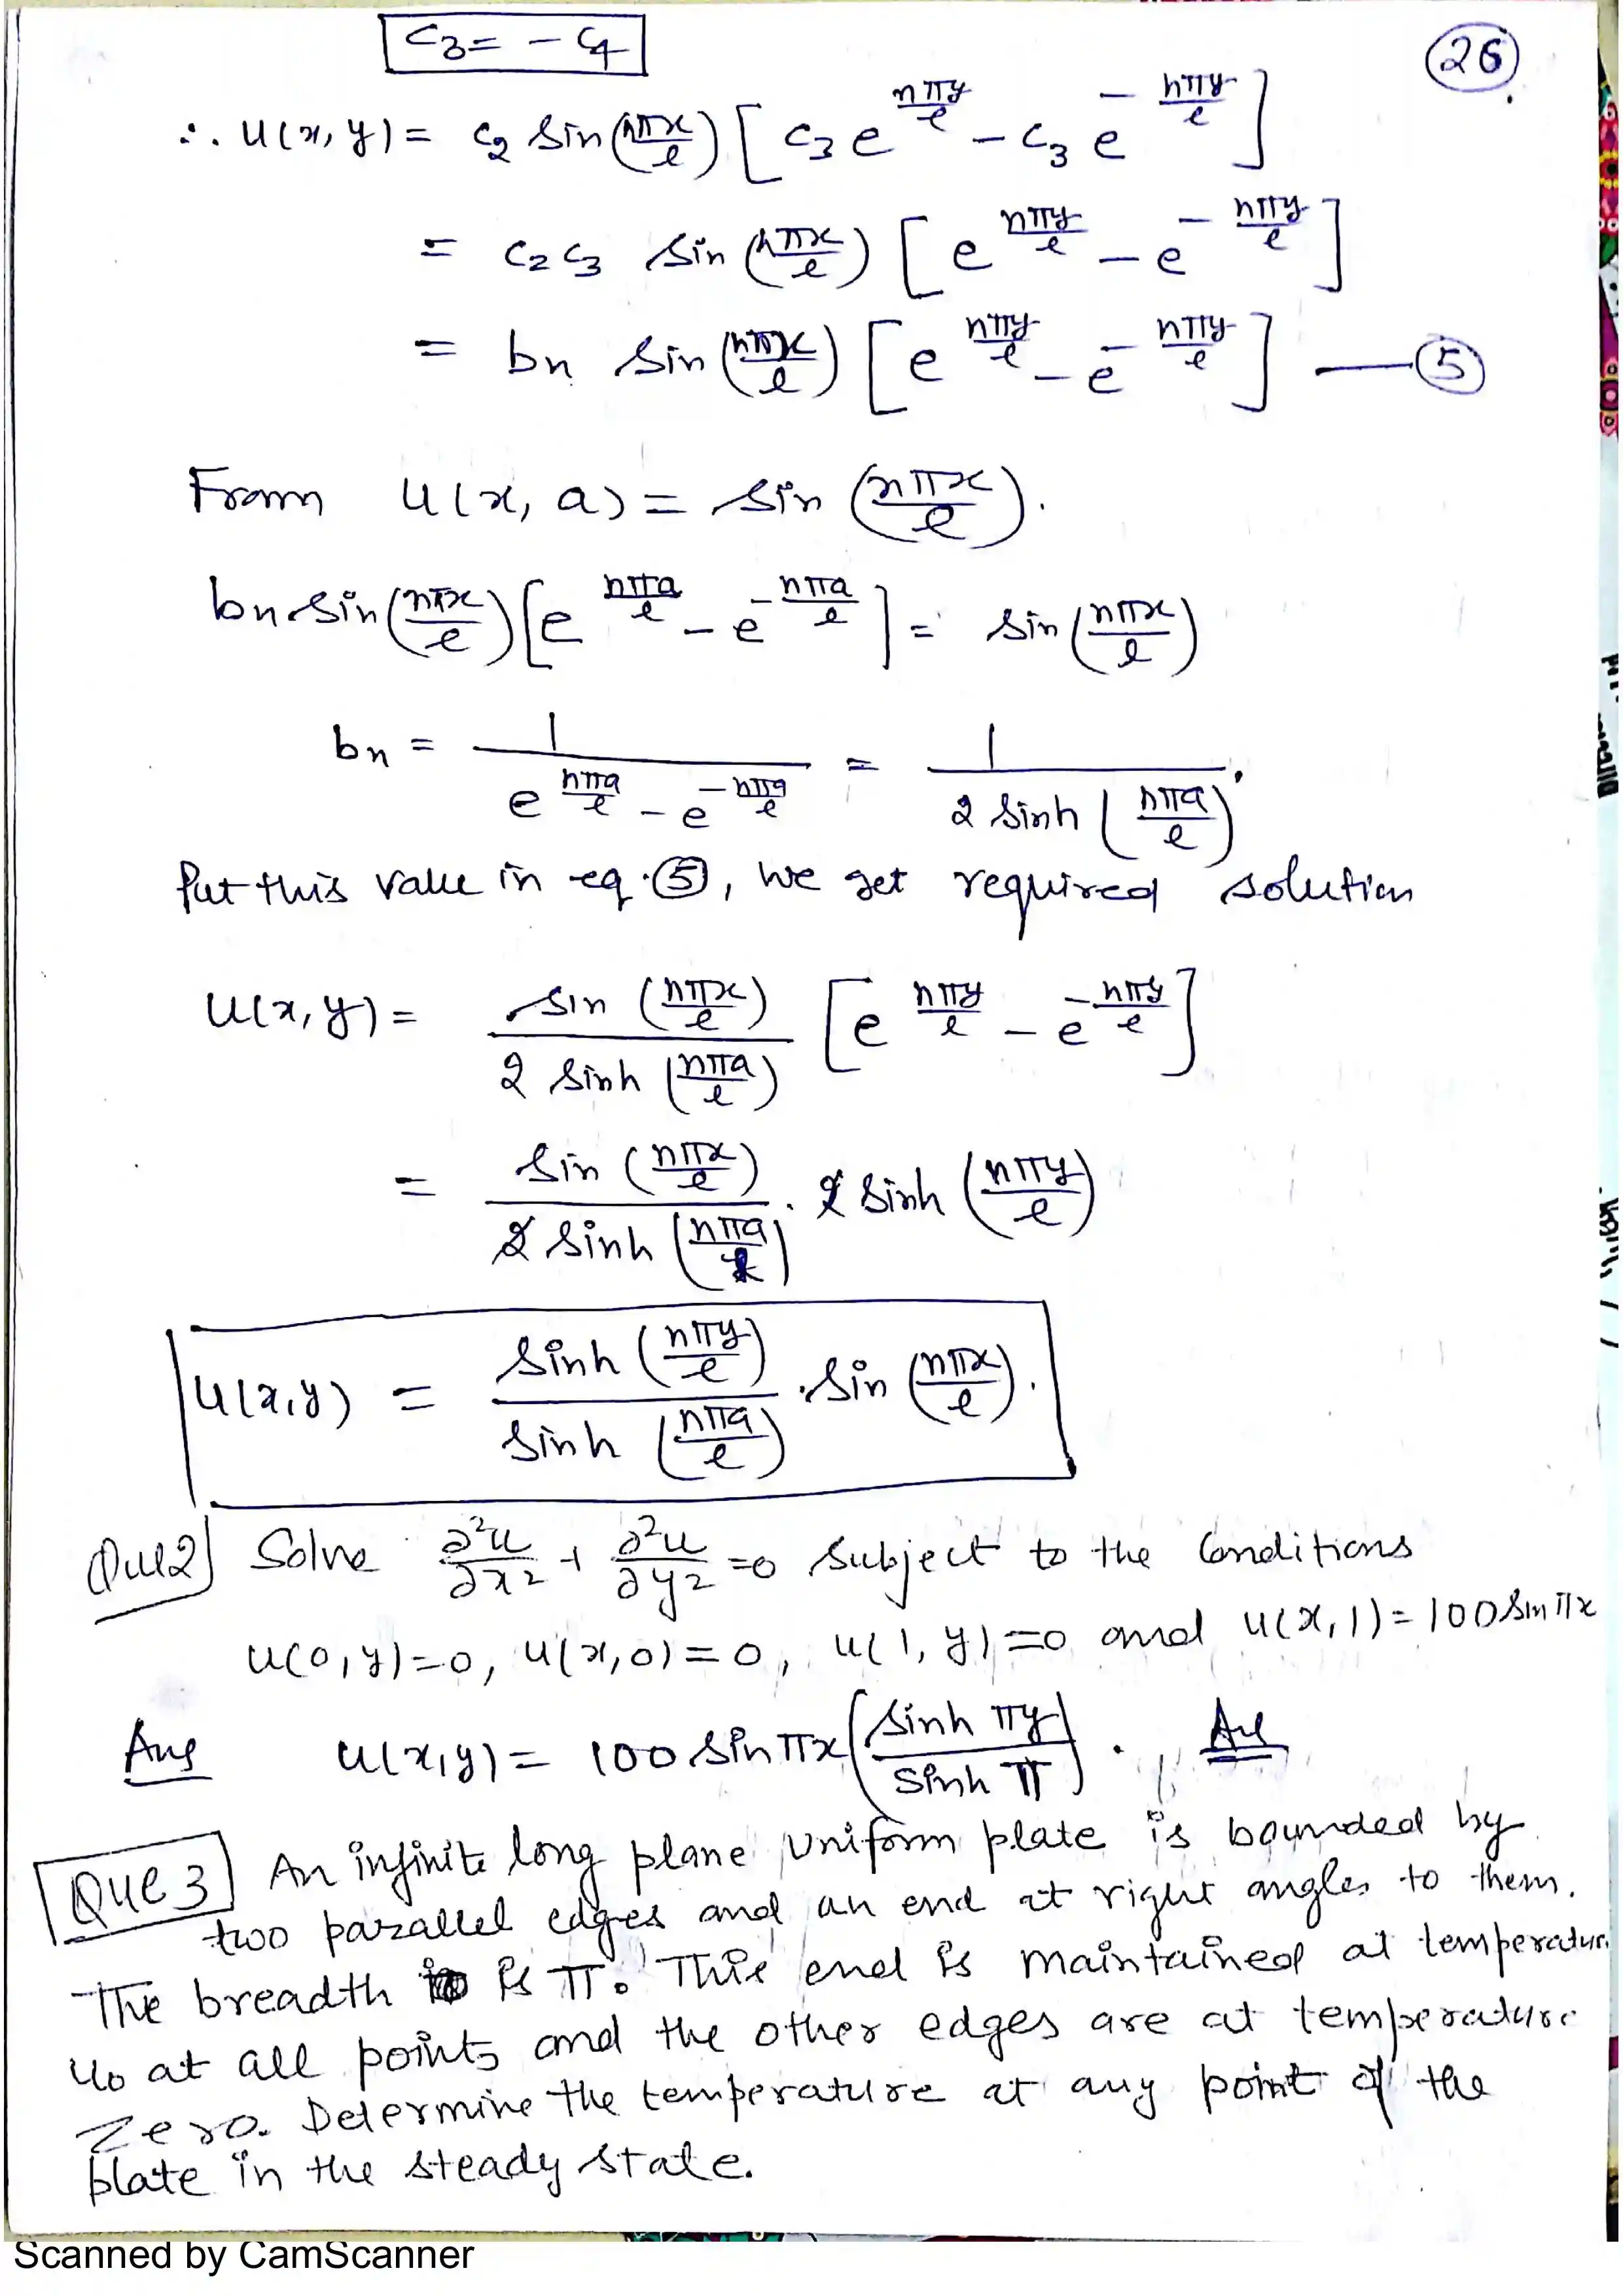 C3 = - C4
26
∴ u(x, y) = C2 sin(nπx/l) [C3 e^(nπy/l) - C3 e^(-nπy/l)]
= C2 C3 sin(nπx/l) [e^(nπy/l) - e^(-nπy/l)]
= bn sin(nπx/l) [e^(nπy/l) - e^(-nπy/l)] — 5
From u(x, a) = sin(nπx/l).
bn sin(nπx/l) [e^(nπa/l) - e^(-nπa/l)] = sin(nπx/l)
bn = 1/(e^(nπa/l) - e^(-nπa/l)) = 1/(2 sinh(nπa/l)).
Put this value in eq. 5, we get required solution
u(x, y) = sin(nπx/l)/(2 sinh(nπa/l)) [e^(nπy/l) - e^(-nπy/l)]
= sin(nπx/l)/(2 sinh(nπa/l)) . 2 sinh(nπy/l)
u(x, y) = sinh(nπy/l)/sinh(nπa/l) . sin(nπx/l).
Que2) Solve ∂²u/∂x² + ∂²u/∂y² = 0 subject to the Conditions
u(0, y) = 0, u(x, 0) = 0, u(1, y) = 0 and u(x, 1) = 100 sin πx
Ans u(x, y) = 100 sin πx (sinh πy/sinh π) . Ans
Que 3) An infinite long plane uniform plate is bounded by
two parallel edges and an end at right angles to them.
The breadth is π. This end is maintained at temperature
u0 at all points and the other edges are at temperature
zero. Determine the temperature at any point of the
plate in the steady state.
Scanned by CamScanner